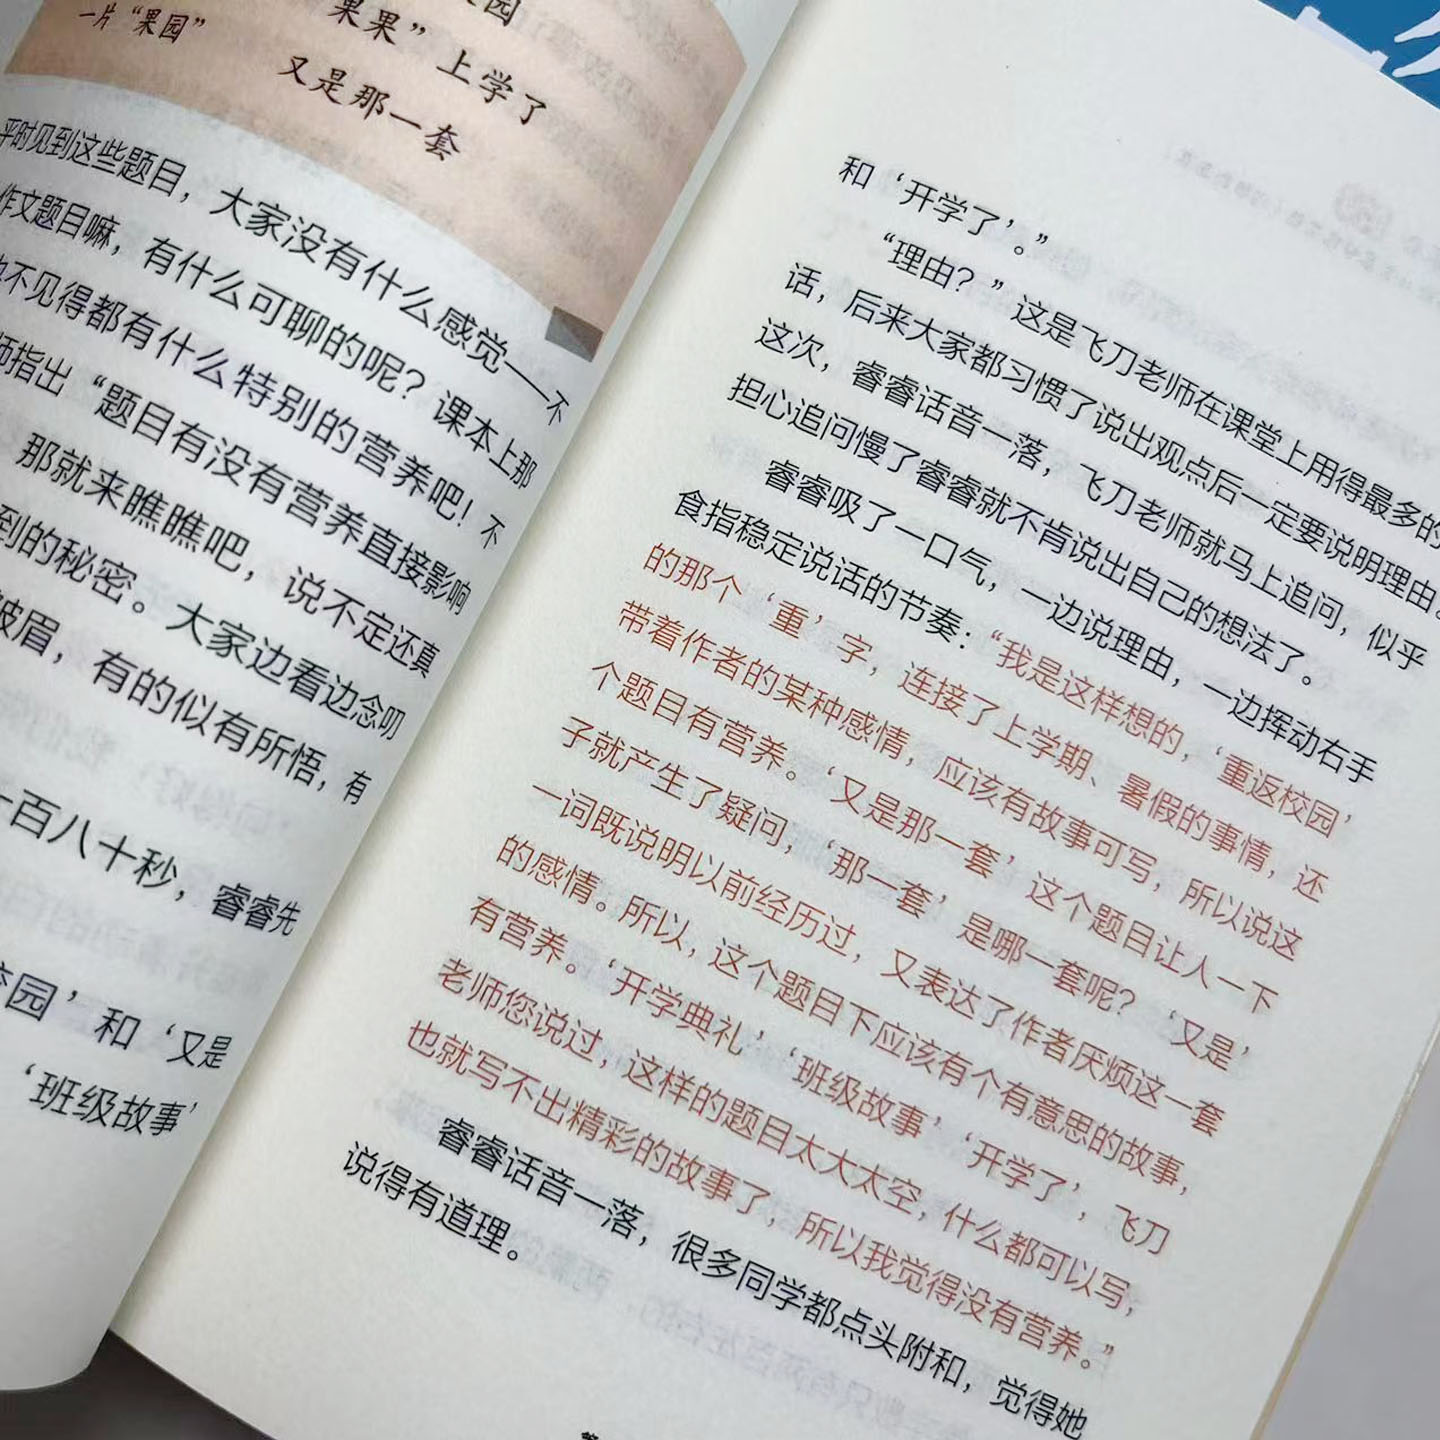 一片“果园”
果果”上学了
又是那一套
平时见到这些题目，大家没有什么感觉——不
作文题目嘛，有什么可聊的呢？课本上那
不见得都有什么特别的营养吧！不
师指出“题目有没有营养直接影响
那就来瞧瞧吧，说不定还真
到的秘密。大家边看边念叨
眉，有的似有所悟，有
一百八十秒，睿睿先
园’和‘又是
‘班级故事’
和‘开学了’。”
“理由？”这是飞刀老师在课堂上用得最多的
话，后来大家都习惯了说出观点后一定要说明理由。
这次，睿睿话音一落，飞刀老师就马上追问，似乎
担心追问慢了睿睿就不肯说出自己的想法了。
睿睿吸了一口气，一边说理由，一边挥动右手
食指稳定说话的节奏：“我是这样想的，‘重返校园’
的那个‘重’字，连接了上学期、暑假的事情，还
带着作者的某种感情，应该有故事可写，所以说这
个题目有营养。‘又是那一套’这个题目让人一下
子就产生了疑问，‘那一套’是哪一套呢？‘又是’
一词既说明以前经历过，又表达了作者厌烦这一套
的感情。所以，这个题目下应该有个有意思的故事，
有营养。‘开学典礼’‘班级故事’‘开学了’，飞刀
老师您说过，这样的题目太大太空，什么都可以写，
也就写不出精彩的故事了，所以我觉得没有营养。”
睿睿话音一落，很多同学都点头附和，觉得她
说得有道理。